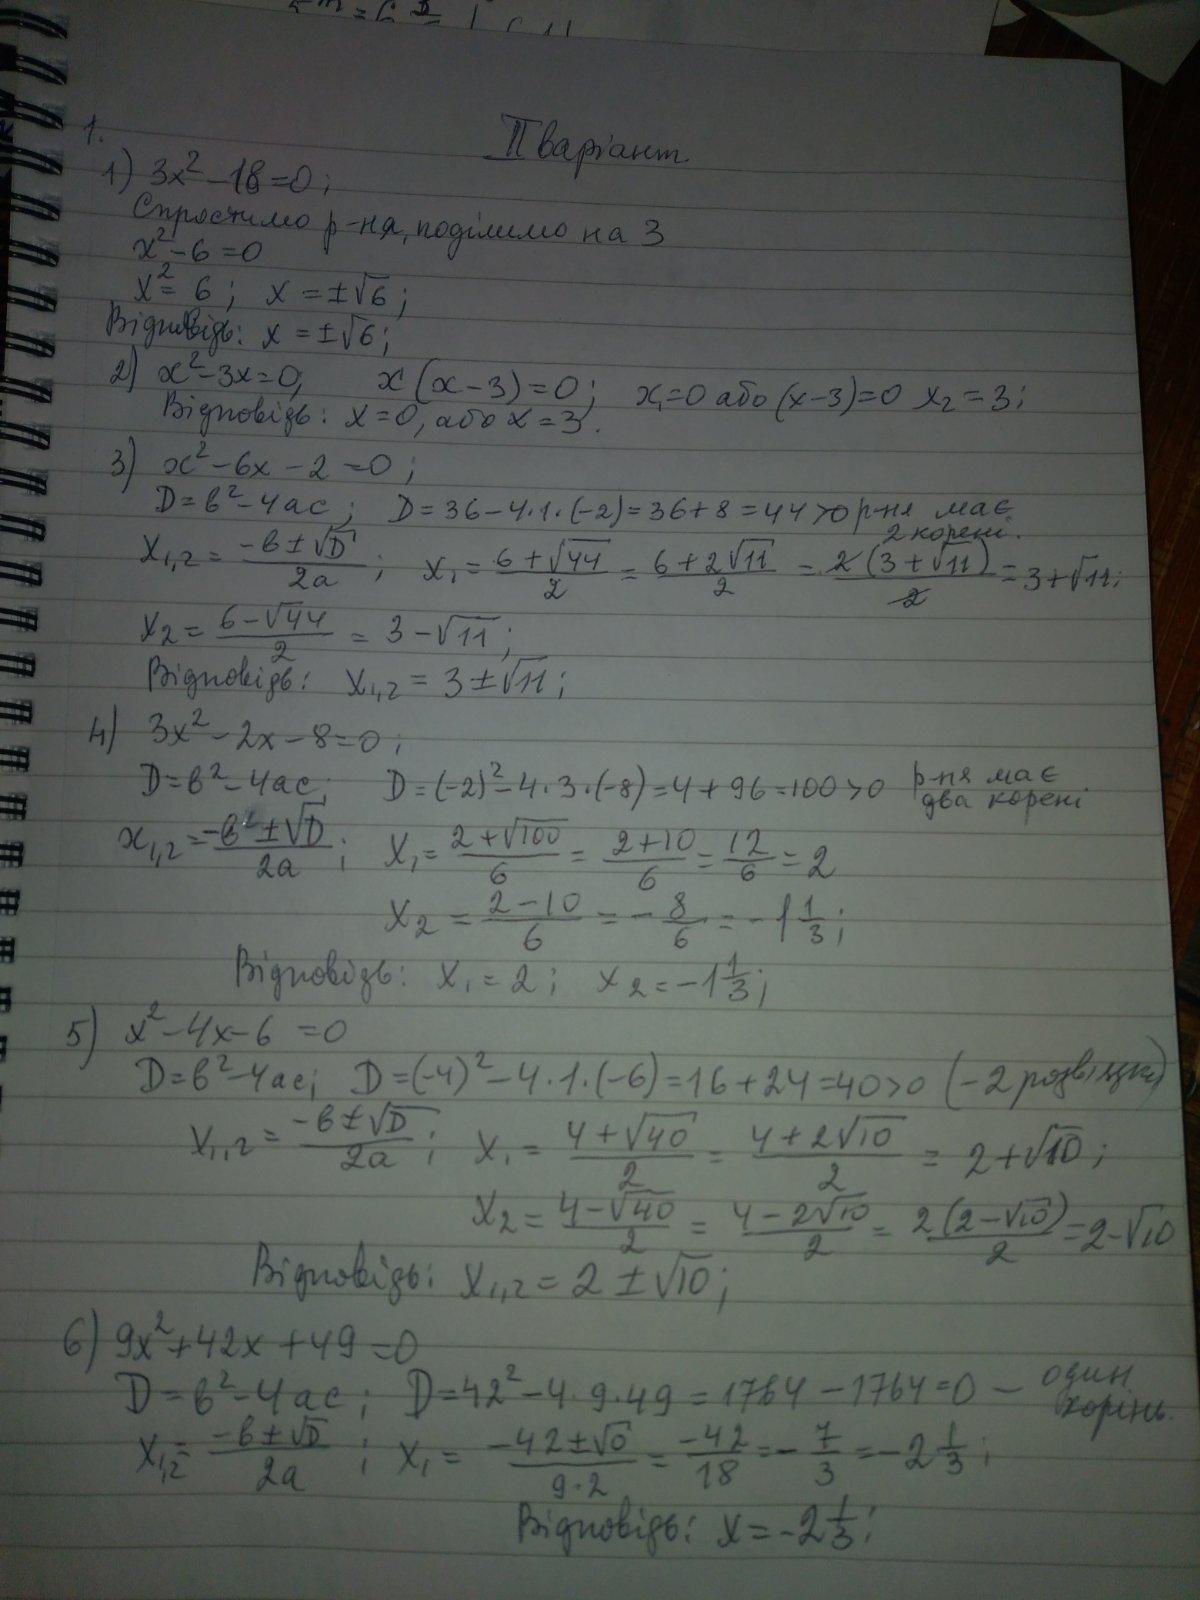 ІІ варіант.
1.
1) 3x² - 18 = 0;
Спростимо р-ня, поділимо на 3
x² - 6 = 0
x² = 6; x = ±√6;
Відповідь: x = ±√6;
2) x² - 3x = 0; x(x - 3) = 0; x₁ = 0 або (x - 3) = 0 x₂ = 3;
Відповідь: x = 0, або x = 3.
3) x² - 6x - 2 = 0;
D = в² - 4ас; D = 36 - 4·1·(-2) = 36 + 8 = 44 > 0 р-ня має
2 корені.
x₁,₂ = (-в ± √D)/2a; x₁ = (6 + √44)/2 = (6 + 2√11)/2 = 2(3 + √11)/2 = 3 + √11;
x₂ = (6 - √44)/2 = 3 - √11;
Відповідь: x₁,₂ = 3 ± √11;
4) 3x² - 2x - 8 = 0;
D = в² - 4ас; D = (-2)² - 4·3·(-8) = 4 + 96 = 100 > 0 р-ня має
два корені
x₁,₂ = (-в ± √D)/2a; x₁ = (2 + √100)/6 = (2 + 10)/6 = 12/6 = 2
x₂ = (2 - 10)/6 = - 8/6 = -1 1/3;
Відповідь: x₁ = 2; x₂ = -1 1/3;
5) x² - 4x - 6 = 0
D = в² - 4ас; D = (-4)² - 4·1·(-6) = 16 + 24 = 40 > 0 (- 2 розв'язки)
x₁,₂ = (-в ± √D)/2a; x₁ = (4 + √40)/2 = (4 + 2√10)/2 = 2 + √10;
x₂ = (4 - √40)/2 = (4 - 2√10)/2 = 2(2 - √10)/2 = 2 - √10
Відповідь: x₁,₂ = 2 ± √10;
6) 9x² + 42x + 49 = 0
D = в² - 4ас; D = 42² - 4·9·49 = 1764 - 1764 = 0 - один
корінь.
x₁,₂ = (-в ± √D)/2a; x₁ = (-42 ± √0)/9·2 = -42/18 = - 7/3 = -2 1/3;
Відповідь: x = -2 1/3;